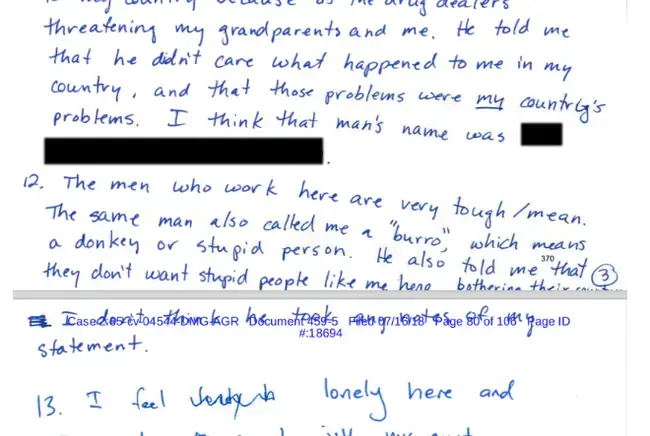 my country because of the drug dealers
threatening my grandparents and me. He told me
that he didn't care what happened to me in my
country, and that those problems were my country's
problems. I think that man's name was
.
12. The men who work here are very tough/mean.
The same man also called me a "burro", which means
a donkey or stupid person. He also told me that
370
3
they don't want stupid people like me here bothering their
I don't think he took any notes of my
Case 2:85-cv-04544-DMG-AGR Document 459-5 Filed 07/16/18 Page 80 of 106 Page ID
#:18694
statement.
13. I feel lonely here and